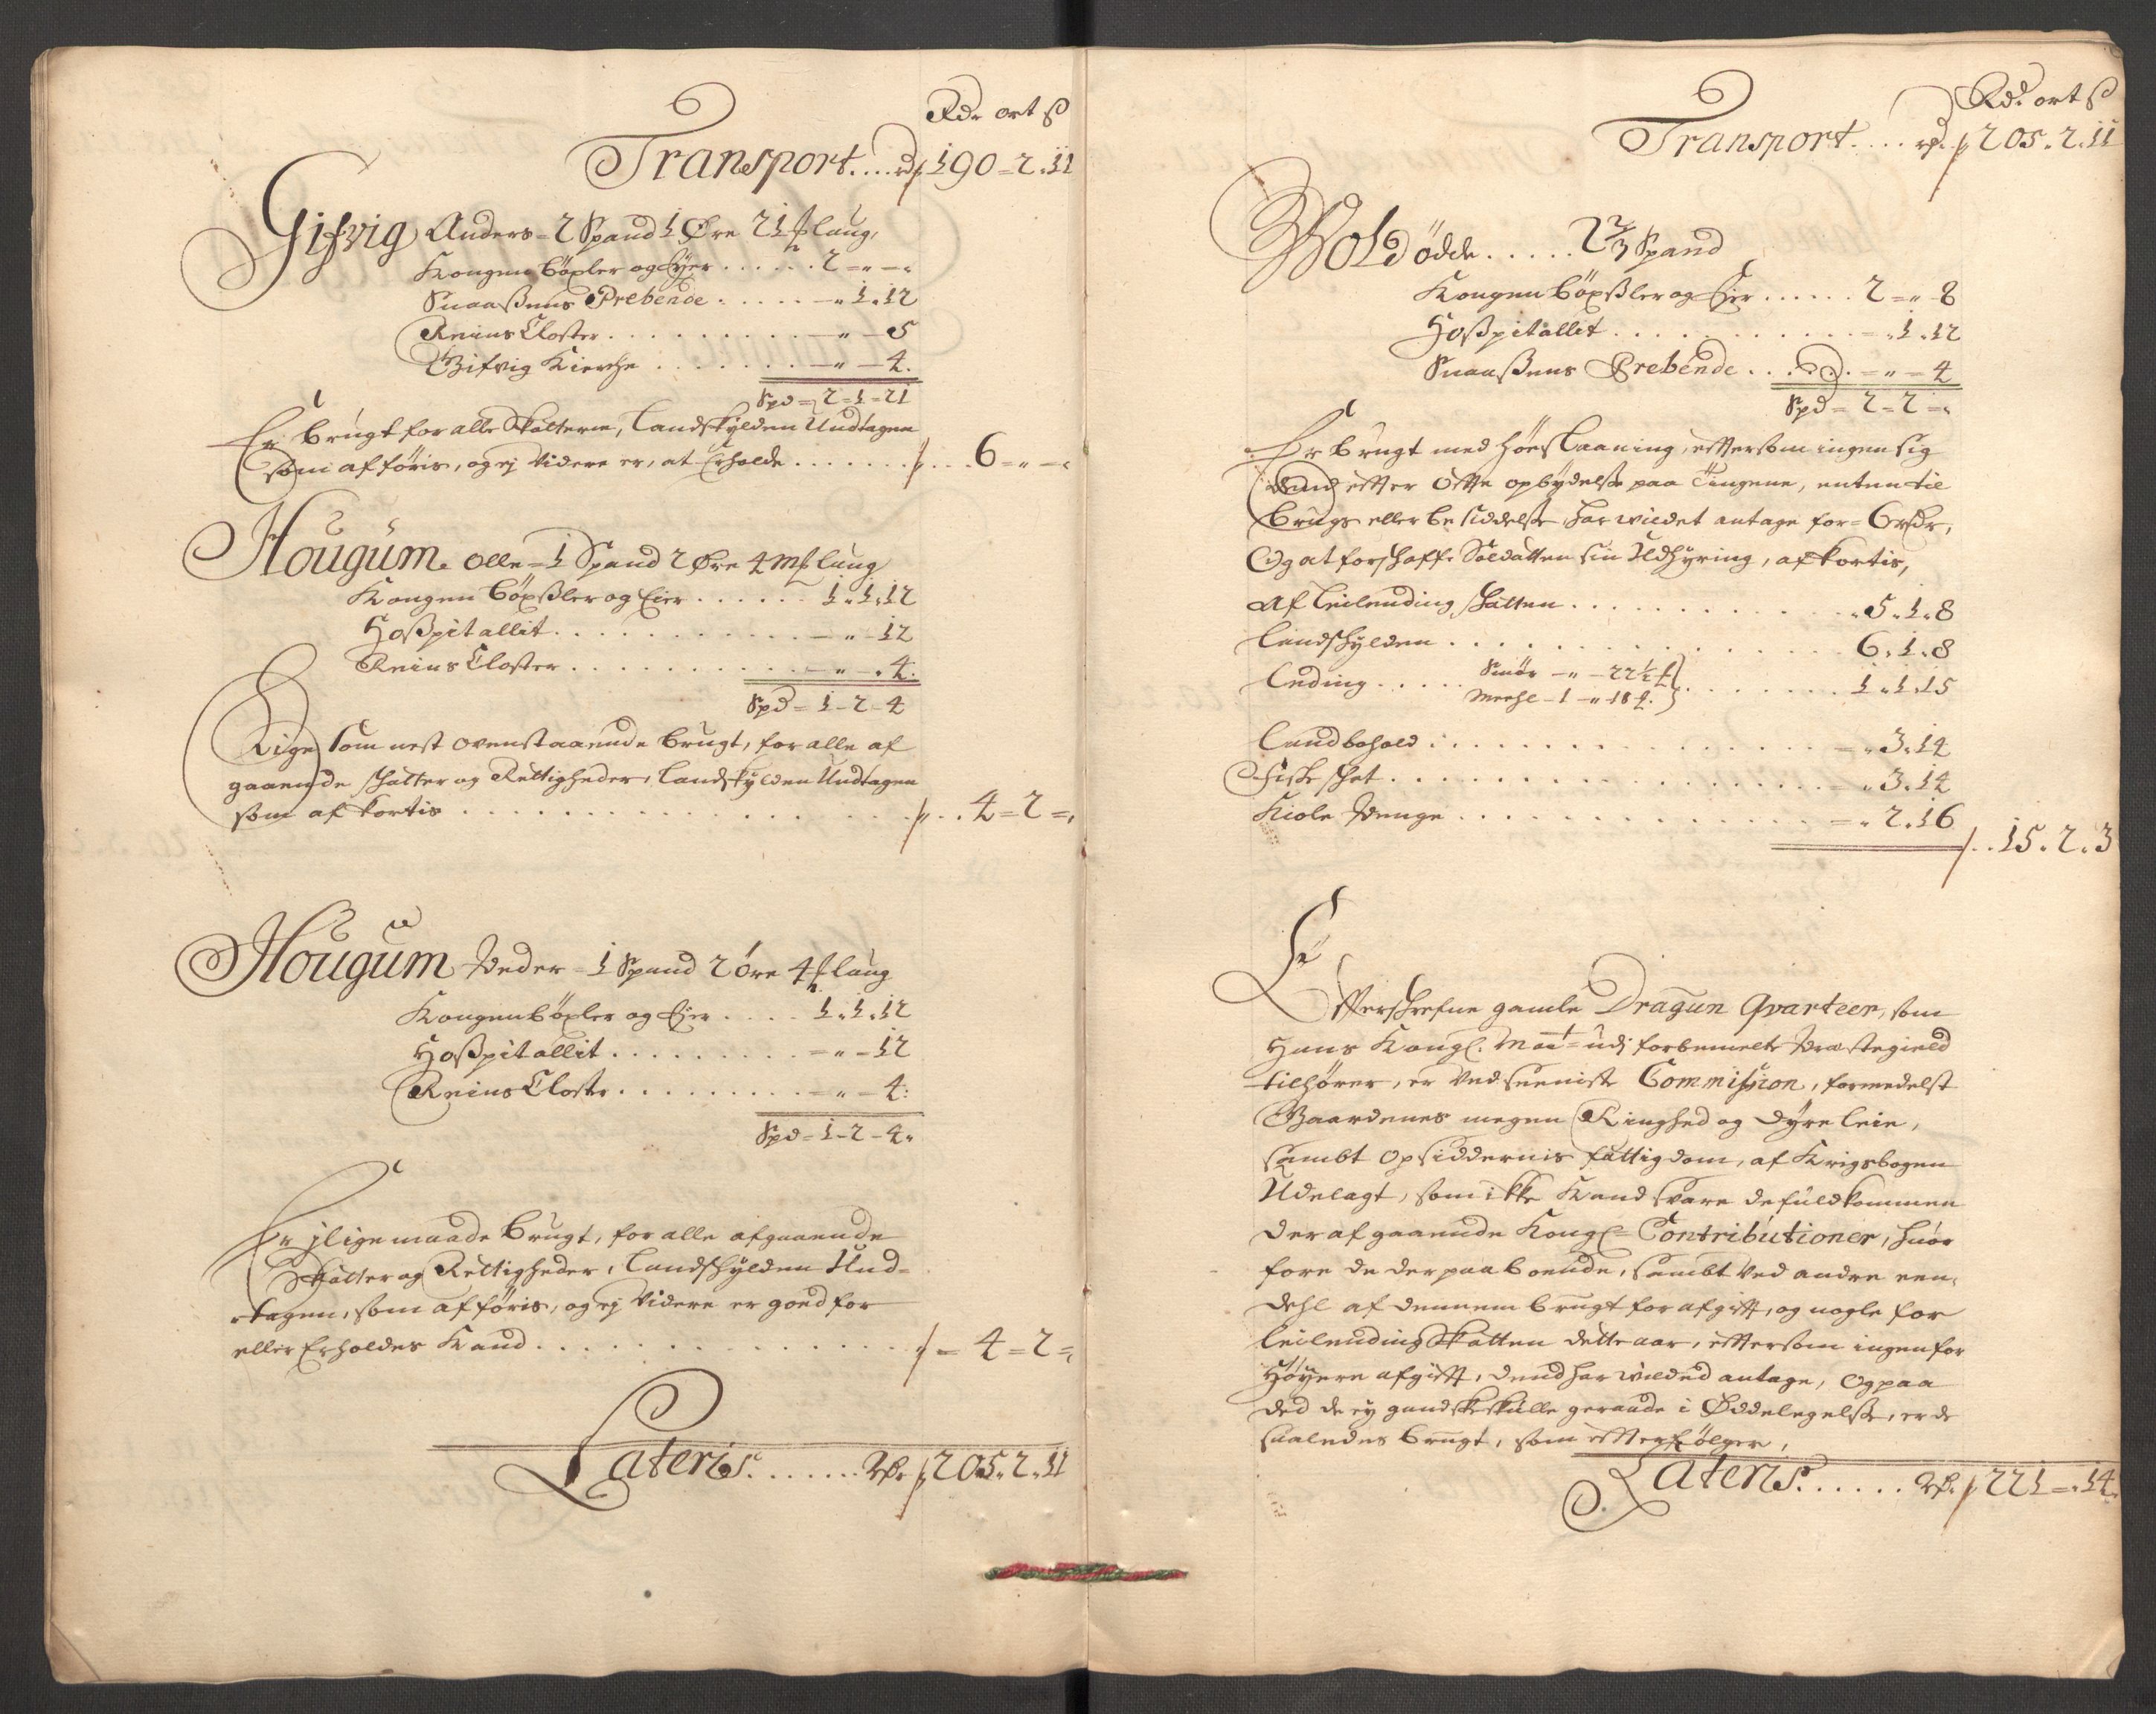 Rdr ort ß
Transport.... rdr 190 = 2. 11
Gifvig Anders = 2 Spand 1 Øre 21 ꝑlaug,
Kongen böxler og Eyer . . . . . . 2 = „ — „
Snaaßens Prebende . . . . . — „ 1. 12
Reins Closter . . . . . . . . . — „ — 5
Gifvig Kierche . . . . . . . — „ — 4.
Spd = 2 = 1 = 21
Er brugt for alle Skatterne, Landskylden Undtagen
som afføris, og ej Videre er, at Erholde . . . . . . . . . 6 = „ — „
Hougum Olle = 1 Spand 2 Øre 4 mꝑ laug
Kongen böxßler og Eier . . . . . . 1. 1. 12
Hoßpitallit . . . . . . . . . . . — „ — 12
Reins Closter . . . . . . . . . . — „ — „ 4.
Spd = 1 – 2 – 4
Lige som nest ovenstaaende brugt, for alle af
gaaende schatter og Rettigheder, Landskylden Undtagen
som af kortis . . . . . . . . . . . . . . . . . 4 = 2 = „
Hougum Peder = 1 Spand 2 öre 4 ꝑ laug
Kongen böxler og Eier . . . . 1. 1. 12
Hoßpitallit . . . . . . . . . = „ – 12
Reins Closter . . . . . . . . . = „ – 4:
Spd = 1 – 2 – 4 „
Er jlige maade brugt, for alle afgaaende
Skatter og Rettigheder, Landschylden Und=
tagen, som afføris, og ej Videre er goed for
eller Erholdes Kand . . . . . . . . . . . . . . . = 4 = 2 = „
Lateris . . . . . . . Rdr 205. 2. 11
Rdr ort ß
Transport . . . . rdr. 205. 2. 11
Wold ödde . . . . . 2 2/3 Spand
Kongen böxßler og Eier . . . . . . 2 = „ 8
Hoßpitallit . . . . . . . . . . . . = „ 1. 12
Snaaßens Prebende . . . . . . = „ – 4
Spd = 2 = 2 = „
Er brugt med höeslaaning, effter som ingen sig
dend effter Offte opbydelße paa Tingene, enten til
brugs eller besiddelße har wildet antage for = 6 rdr,
Og at forschaffe Soldatten sin Udhyring, afkortis,
Af Leilending schatten . . . . . . . . . . . . „ 5. 1. 8
Landschylden . . . . . . . . . . . . . . . . 6. 1. 8
Leding . . . . . Smör — „ — 22 1/2 ꝑ
Meehl — 1 — „ 18 ꝑ. } . . . . . . . . 1. 1. 15
Landbohold . . . . . . . . . . . . . . . . = „ 3. 14
Fiske schat . . . . . . . . . . . . . . . . . = „ 3. 14
Kiole Penge . . . . . . . . . . . . . . = „ 2. 16
15. 2. 3
Effterschrefne gamle Dragun Qvarteer, som
Hans Kongl. Maÿt = udj forbemelte Præstegield
tilhører, er Ved seeniste Commission, formedelst
Gaardenes megen Ringhed og dyre leie,
sambt Opsiddernis fattigdom, af Krigsbogen
Udelagt, som ikke Kand svare de fuldkommen
der af gaaende Kongl = Contributioner, huor
fore de der paa boende, sambt Ved andre een,
dehl af dennem brugt for afgifft, og nogle for
leilending Skatten dette aar, effter som ingen for
Høyere afgifft, dend har wilded antage, Og paa
ded de ey gandske skulle geraade i Øddelegelße, er de
saaledes brugt, som effterfølger,
Lateris . . . . . . Rdr. 221 = „ 14.